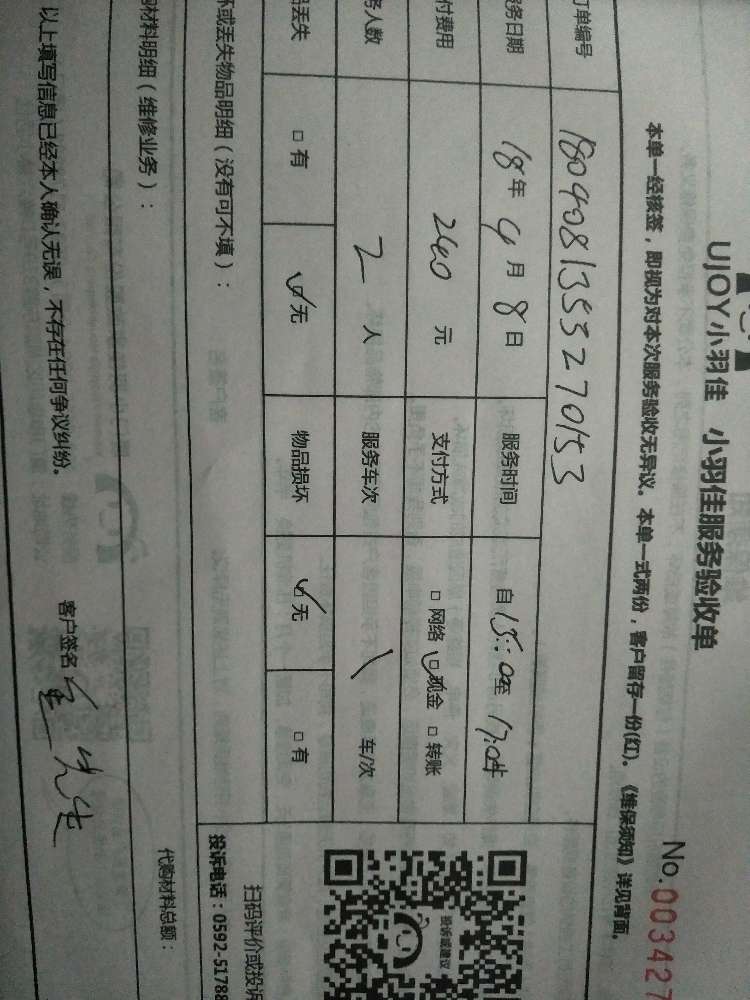 UJOY小羽佳 小羽佳服务验收单
No.003427
本单一经核签，即视为对本次服务验收无异议。本单一式两份，客户留存一份(红)。《维保须知》详见背面。
订单编号 1804081355270153
服务日期 18年4月8日 服务时间 自15:00至17:0
付费用 240元 支付方式 □网络 ☑现金 □转账
务人数 2人 服务车次 车/次
品丢失 □有 ☑无 物品损坏 ☑无 □有
坏或丢失物品明细（没有可不填）：
购材料明细（维修业务）：
代购材料总额：
以上填写信息已经本人确认无误，不存在任何争议纠纷。
客户签名 先生
投诉或建议
扫码评价或投诉
投诉电话：0592-51788